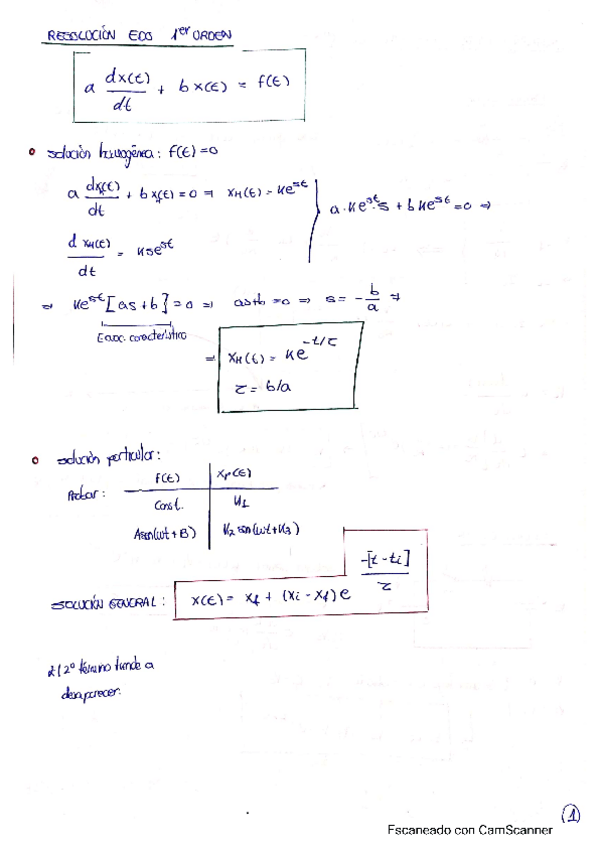 RESOLUCIÓN EDO 1er ORDEN
a dx(t)/dt + b x(t) = f(t)
solución homogénea: f(t) = 0
a dx(t)/dt + b x(t) = 0 ⇒ xH(t) = Ke^st
a·Ke^st·s + bKe^st = 0 ⇒
d xH(t)/dt = Kse^st
⇒ Ke^st [as + b] = 0 ⇒ as+b = 0 ⇒ s = - b/a ⇒
Ecuac. característica
⇒ xH(t) = Ke^-t/τ
τ = b/a
solución particular:
Probar:
f(t) xp(t)
Const. K1
Asen(ωt + B) K2 sen(ωt + K3)
SOLUCIÓN GENERAL: x(t) = xf + (xi - xf) e^-[t - ti]/τ
2º término tiende a
desaparecer.
(1)
Escaneado con CamScanner